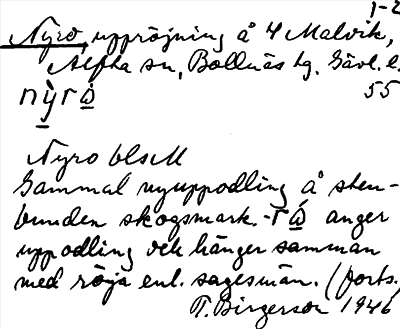 1-2
Nyro, uppröjning å 4 Malvik,
Alfta sn, Bollnäs tg. Gävl. l.
nỳrå̀ 55
Nyro bls M
Gammal nyuppodling å sten-
bunden skogsmark. -rå̀ anger
uppodling och hänger samman
med röja enl. sagesmän. (forts.
T. Birgerson 1946